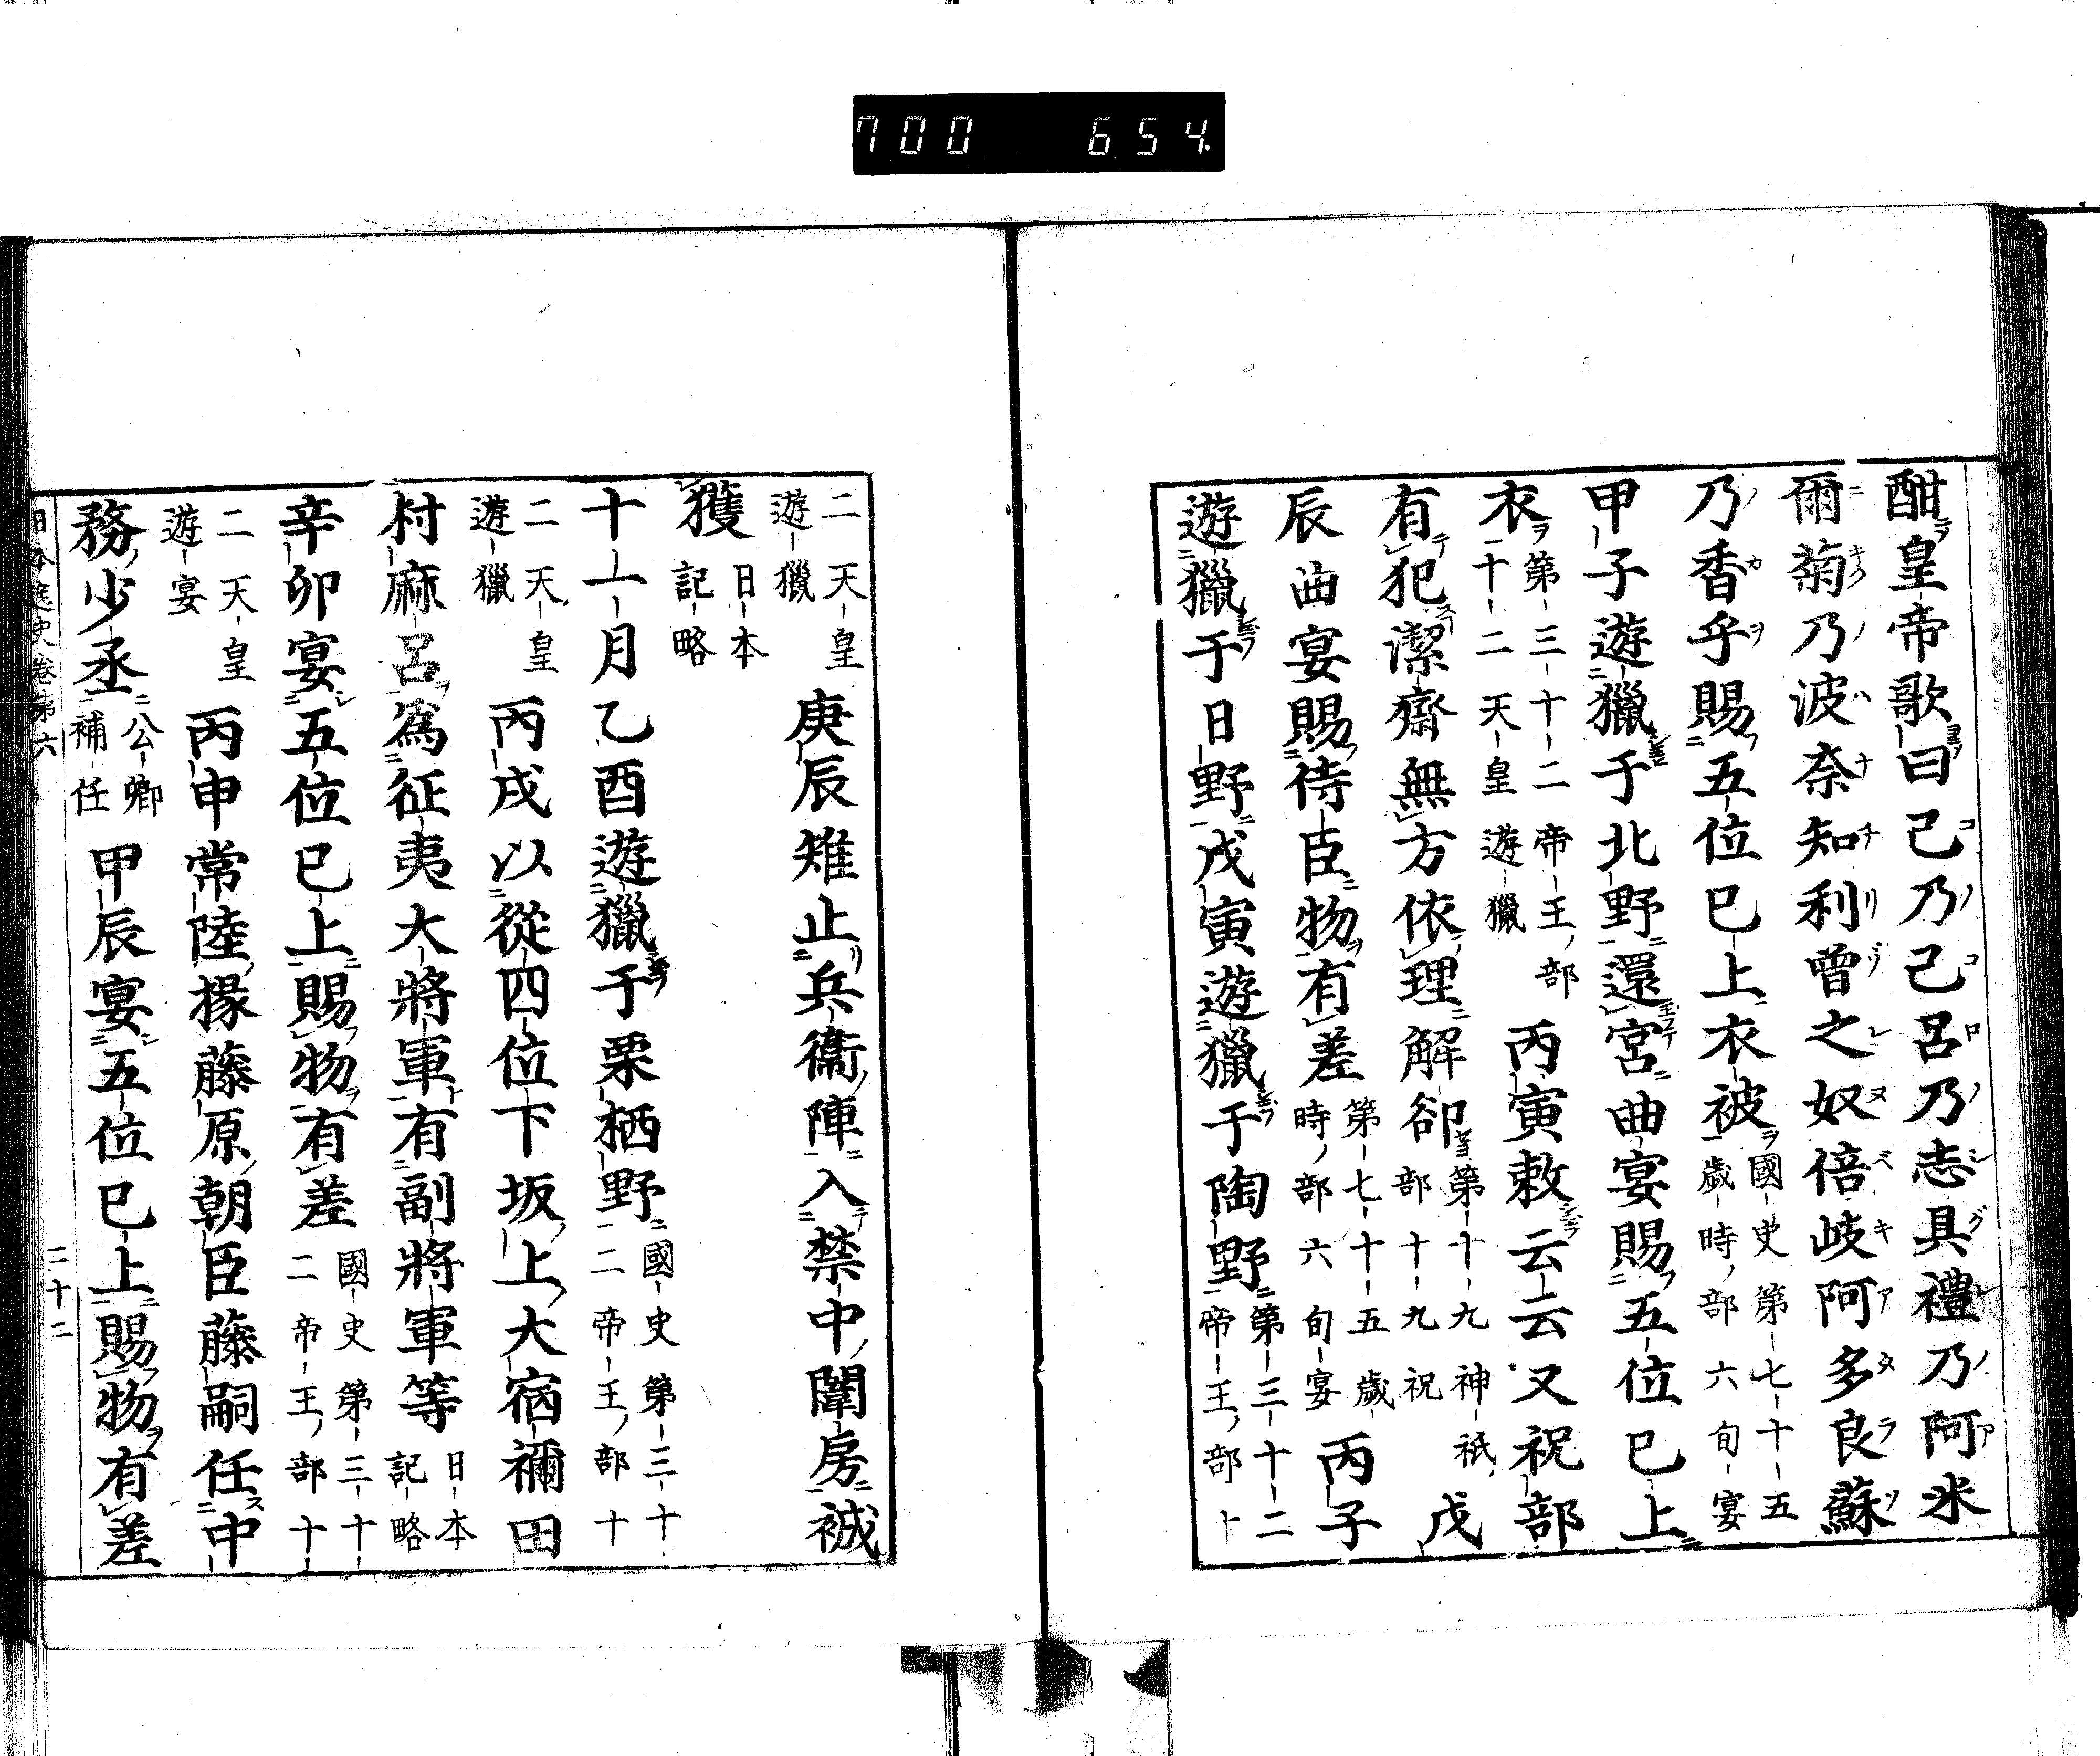 700 654.
酣皇帝歌曰己乃己呂乃志具禮乃阿米
爾菊乃波奈知利曾之奴倍岐阿多良蘇
乃香乎賜五位已上衣被國史第七十五歲時部六旬宴
甲子遊獵于北野還宮曲宴賜五位已上
衣第三十二帝王部十二天皇遊獵丙寅敕云云又祝部
有犯潔齋無方依理解卻第十九神祇部十九祝戊
辰曲宴賜侍臣物有差第七十五歲時部六旬宴丙子
遊獵于日野戊寅遊獵于陶野第三十二帝王部十
二天皇遊獵庚辰雉止兵衞陣入禁中闈房裓
獲日本記略
十一月乙酉遊獵于栗栖野國史第三十二帝王部十
二天皇遊獵丙戌以從四位下坂上大宿禰田
村麻呂為征夷大將軍有副將軍等日本記略
辛卯宴五位已上賜物有差國史第三十二帝王部十
二天皇遊宴丙申常陸掾藤原朝臣藤嗣任中
務少丞公卿補任甲辰宴五位已上賜物有差
日本逸史卷第六
二十二